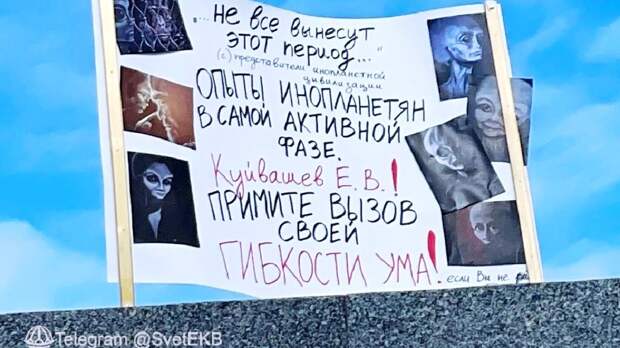 "...не все вынесут
этот период..."
(с) представители инопланетной
цивилизации
ОПЫТЫ ИНОПЛАНЕТЯН
В САМОЙ АКТИВНОЙ
ФАЗЕ.
Куйвашев Е.В.!
ПРИМИТЕ ВЫЗОВ
СВОЕЙ
ГИБКОСТИ УМА!
если Вы не
Telegram @SvetEKB